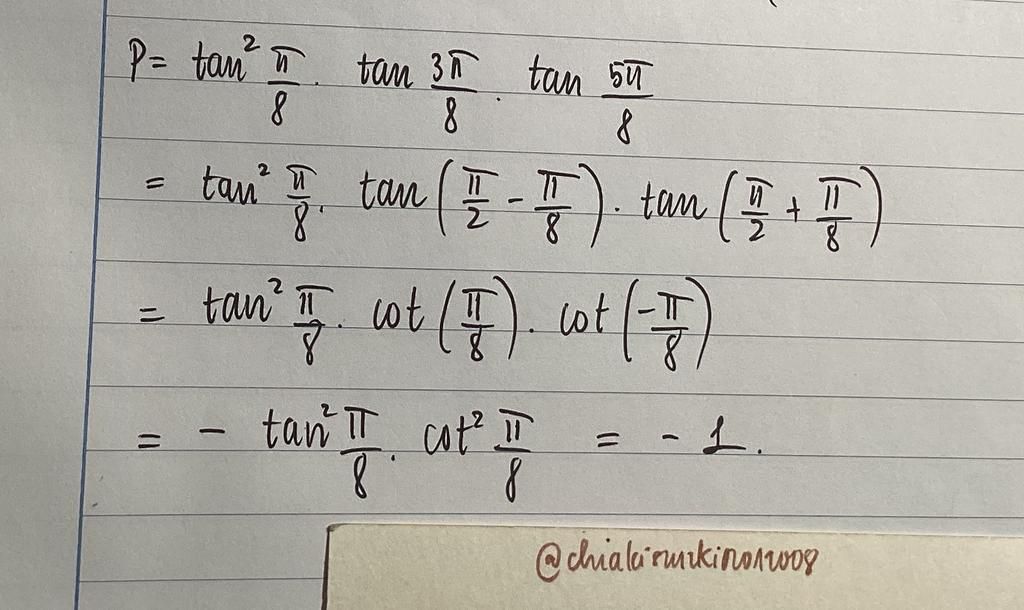 P = tan² π/8 . tan 3π/8 . tan 5π/8
= tan² π/8 . tan (π/2 - π/8) . tan (π/2 + π/8)
= tan² π/8 . cot (π/8) . cot (-π/8)
= - tan² π/8 . cot² π/8 = - 1.